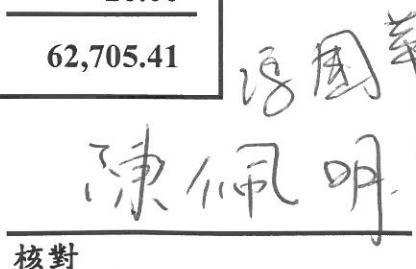 62,705.41
國華
陳佩明
核對